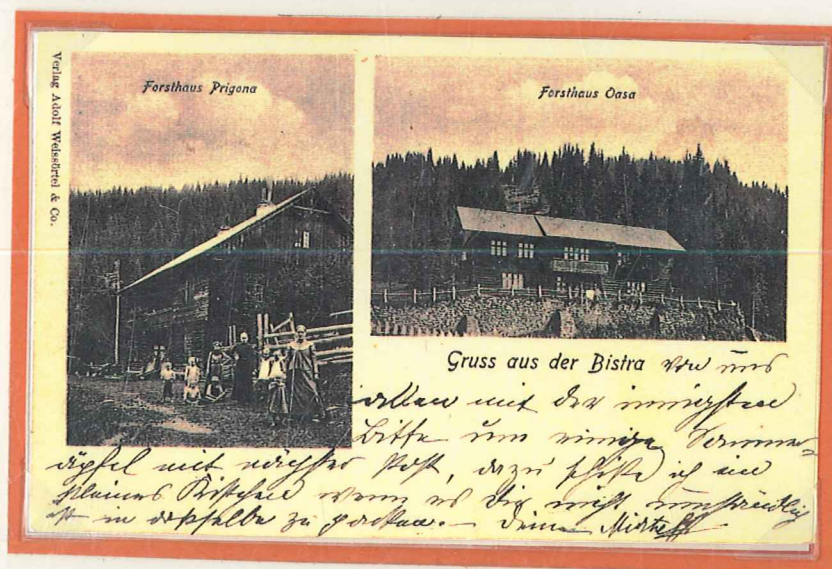 Verlag Adolf Weissörtel & Co.
Forsthaus Prigona
Forsthaus Oasa
Gruss aus der Bistra von uns
allen mit der innigsten
Bitte um einige Sommer=
äpfel mit nächster Post, dazu schicke ich ein
kleines Kistchen wenn es Dir nicht umständlich
ist in dasselbe zu packen. – Deine